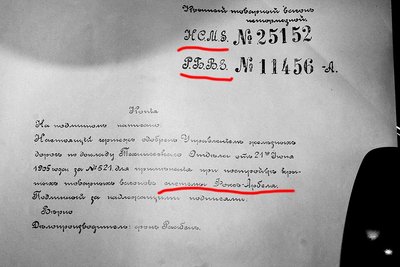 Крытый товарный вагонъ
нетормозной.
Н.С.М.З. № 25152
Р.Б.В.З. № 11456-А.
Копія
На подлинномъ написано
Настоящій чертежъ одобренъ Управленіемъ желѣзныхъ
дорогъ по докладу Техническаго Отдѣла отъ 21го Іюня
1905 года за № 521, для примѣненія при постройкѣ кры-
тыхъ товарныхъ вагоновъ системы Фоксъ-Арбеля.
Подлинный за надлежащими подписями.
Вѣрно
Дѣлопроизводитель: фонъ